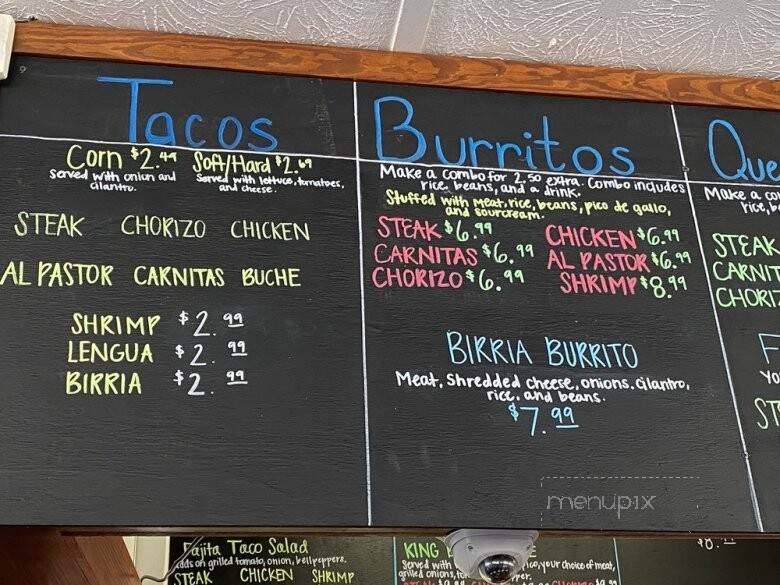 Tacos
Corn $2.49 Soft/Hard $2.69
Served with onion and
cilantro.
Served with lettuce, tomatoes,
and cheese.
STEAK CHORIZO CHICKEN
AL PASTOR CARNITAS BUCHE
SHRIMP $2.99
LENGUA $2.99
BIRRIA $2.99
Burritos
Make a combo for 2.50 extra. Combo includes
rice, beans, and a drink.
Stuffed with meat, rice, beans, pico de gallo,
and sourcream.
STEAK $6.99 CHICKEN $6.99
CARNITAS $6.99 AL PASTOR $6.99
CHORIZO $6.99 SHRIMP $8.99
BIRRIA BURRITO
Meat, shredded cheese, onions, cilantro,
rice, and beans.
$7.99
Que
Make a co
rice, b
STEAK
CARNIT
CHORIZ
F
Yo
ST
menupix
Fajita Taco Salad
grilled tomato, onion, bellpeppers.
STEAK CHICKEN SHRIMP
KING
Served with
your choice of meat,
grilled onions,